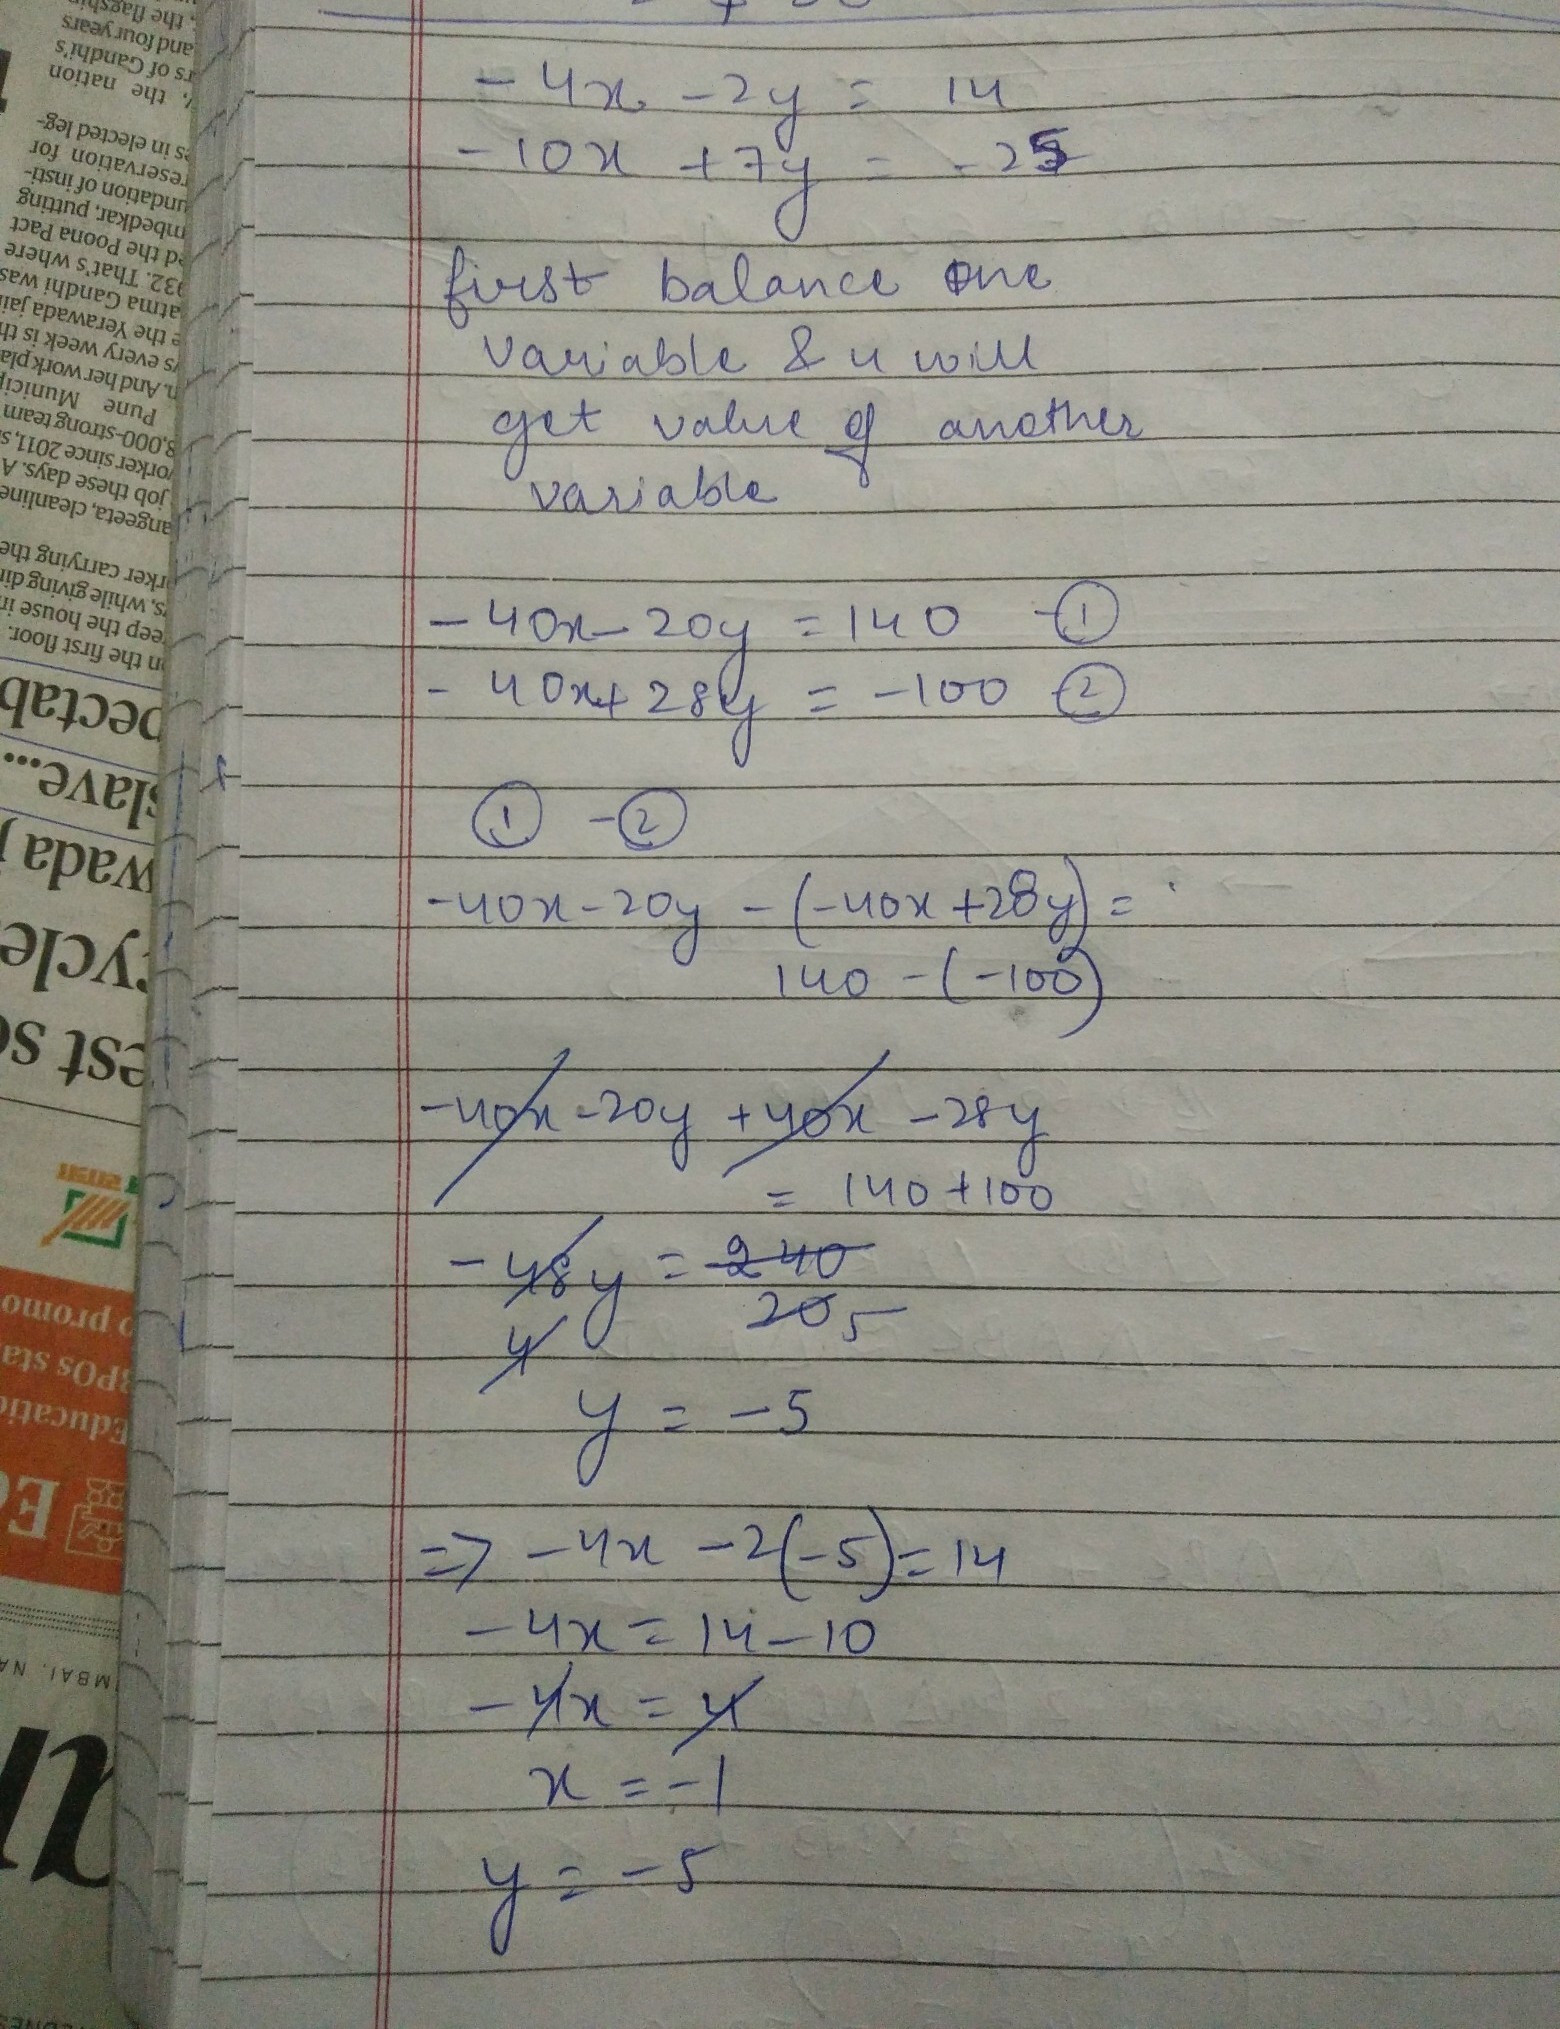 -4x -2y = 14
-10x +7y = -25
first balance one
variable & u will
get value of another
variable
-40x-20y = 140 -①
-40x+28y = -100 -②
① -②
-40x-20y -(-40x+28y) =
140 -(-100)
-40x-20y +40x -28y
= 140+100
-48y = 240
4 20 5
y = -5
=> -4x -2(-5)=14
-4x = 14-10
-4x = 4
x = -1
y = -5
the flagship
and four years
rs of Gandhi's
the nation
es in elected leg-
reservation for
undation of insti-
mbedkar, putting
ed the Poona Pact
932. That's where
atma Gandhi was
e the Yerawada jail
s every week is th
n. And her work pla
Pune Municip
8,000-strong team
vorker since 2011, s
job these days. A
angeeta, cleanline
rker carrying the
s, while giving dir
eep the house in
n the first floor.
pectab
slave...
wada j
ycle
est so
promo
POs sta
Educatio
EC
MBAI, NA